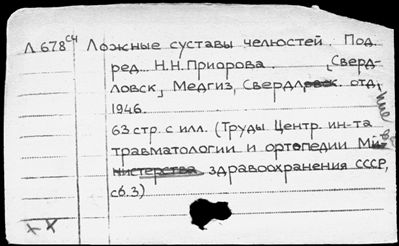 Л 678 сч Ложные суставы челюстей. Под.
ред. Н.Н.Приорова. [Сверд-
ловск], Медгиз, Свердл. отд-
ние
1946.
63 стр. с илл. (Труды Центр. ин-та
травматологии и ортопедии М-ва
здравоохранения СССР,
сб.3)